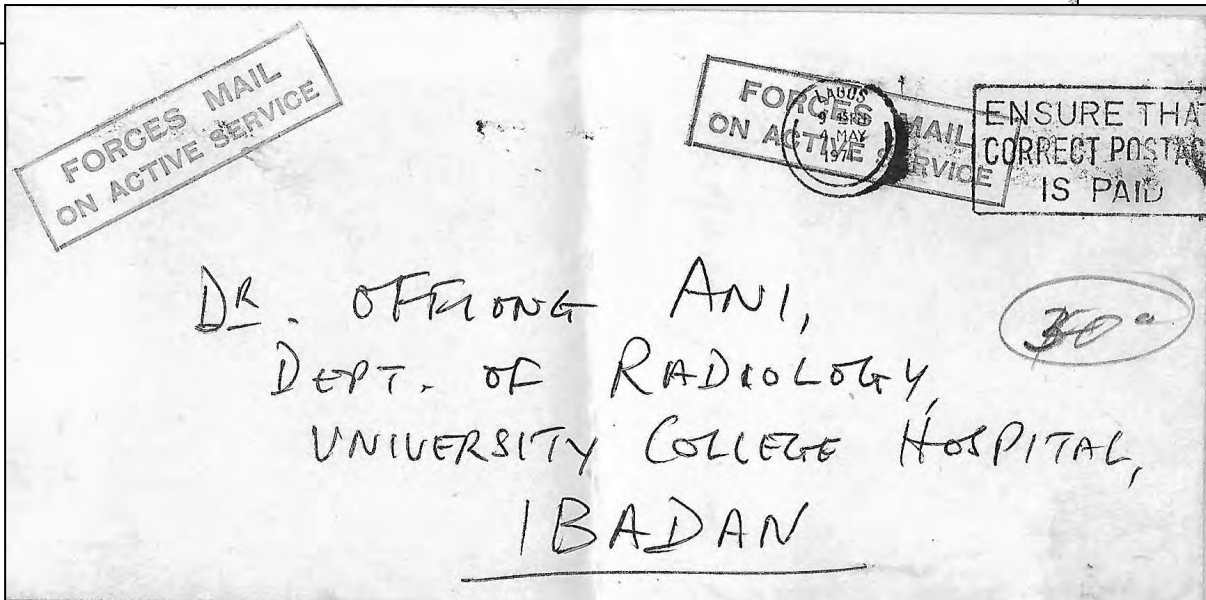 FORCES MAIL
ON ACTIVE SERVICE
FORCES MAIL
ON ACTIVE SERVICE
LAGOS
4 MAY
1971
ENSURE THA
CORRECT POSTAG
IS PAID
DR. OFFIONG ANI,
DEPT. OF RADIOLOGY,
UNIVERSITY COLLEGE HOSPITAL,
IBADAN